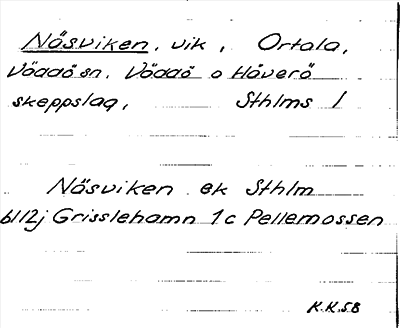 Näsviken, vik, Ortala,
Väddö sn. Väddö o Häverö
skeppslag, Sthlms l
Näsviken ek Sthlm
6112j Grisslehamn 1c Pellemossen
K.K.58